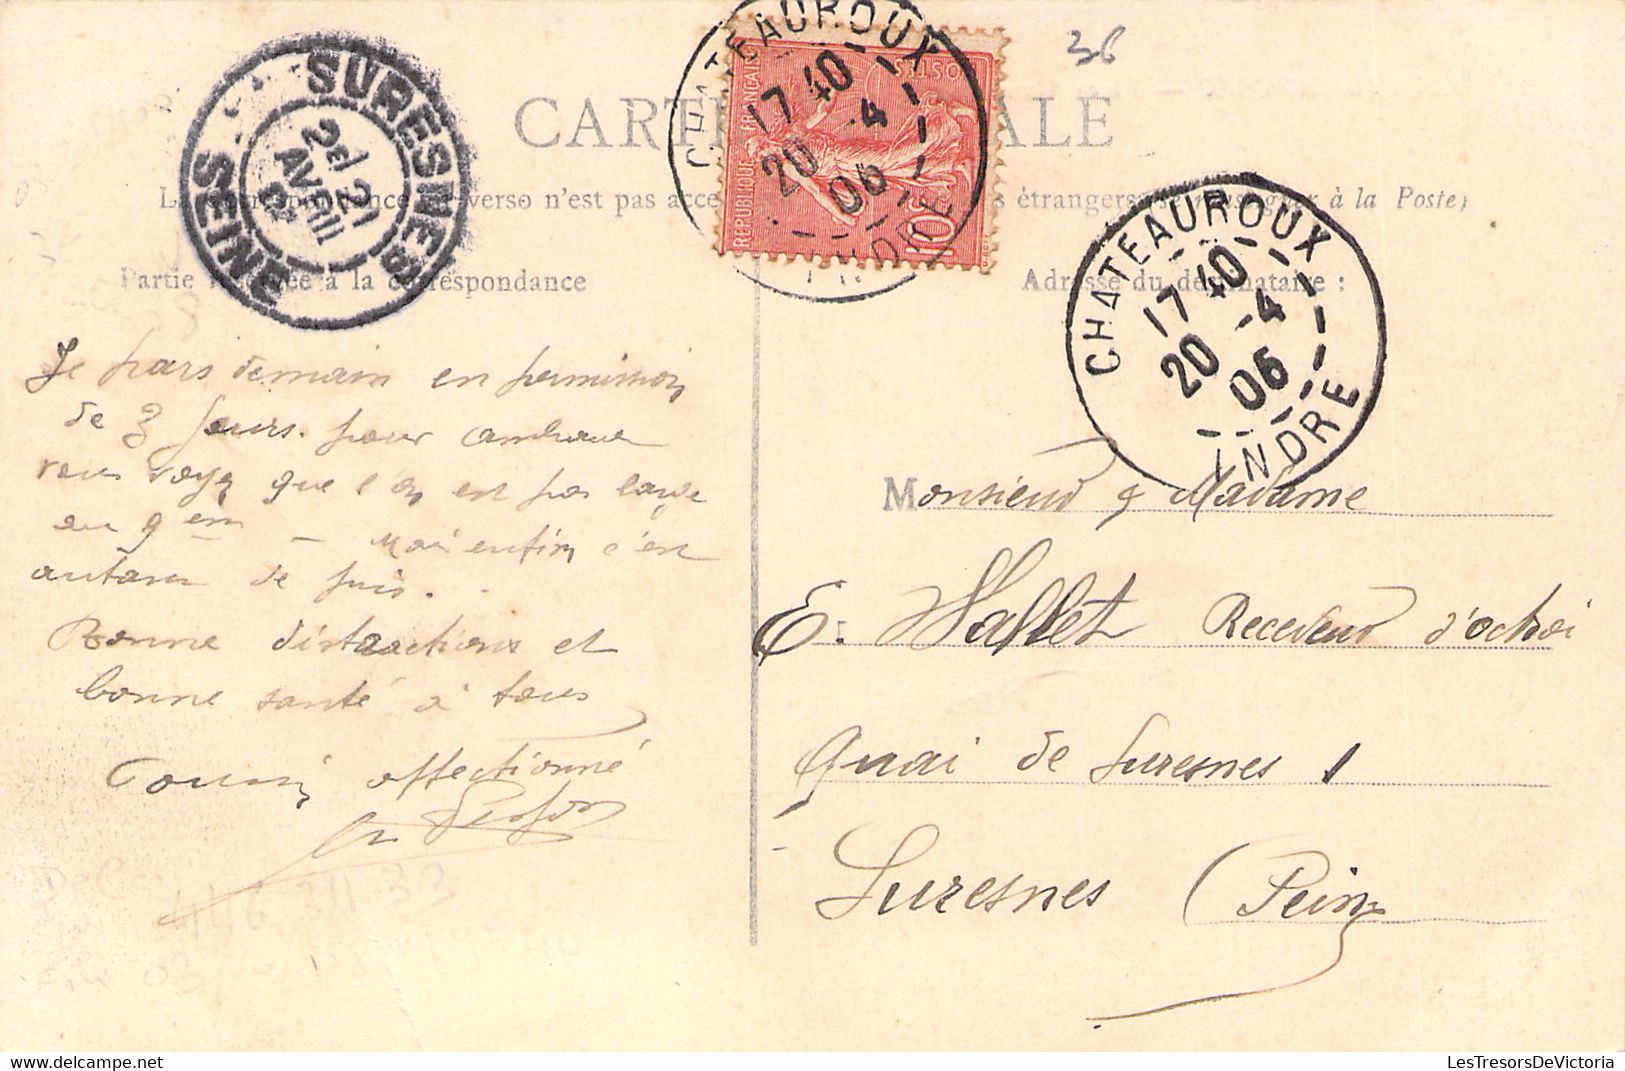 36
SURESNES
2E 21
AVRIL
SEINE
CHATEAUROUX
17 40
20 -4
06
INDRE
REPUBLIQUE FRANCAISE
POSTES
10
CARTE POSTALE
La correspondance au verso n'est pas acce étrangers (se renseigner à la Poste)
Partie réservée à la correspondance
Adresse du destinataire :
CHATEAUROUX
17 40
20 -4
06
INDRE
Je pars demain en permission
de 3 jours. pour
vous voyez que l'on est pas large
au 9em – Mais enfin c'est
autant de pris.
Bonne distractions et
bonne santé à tous
Cousin affectionné
Monsieur & Madame
E. Hallet Receveur d'octroi
Quai de Suresnes 1
Suresnes (Seine
LesTresorsDeVictoria